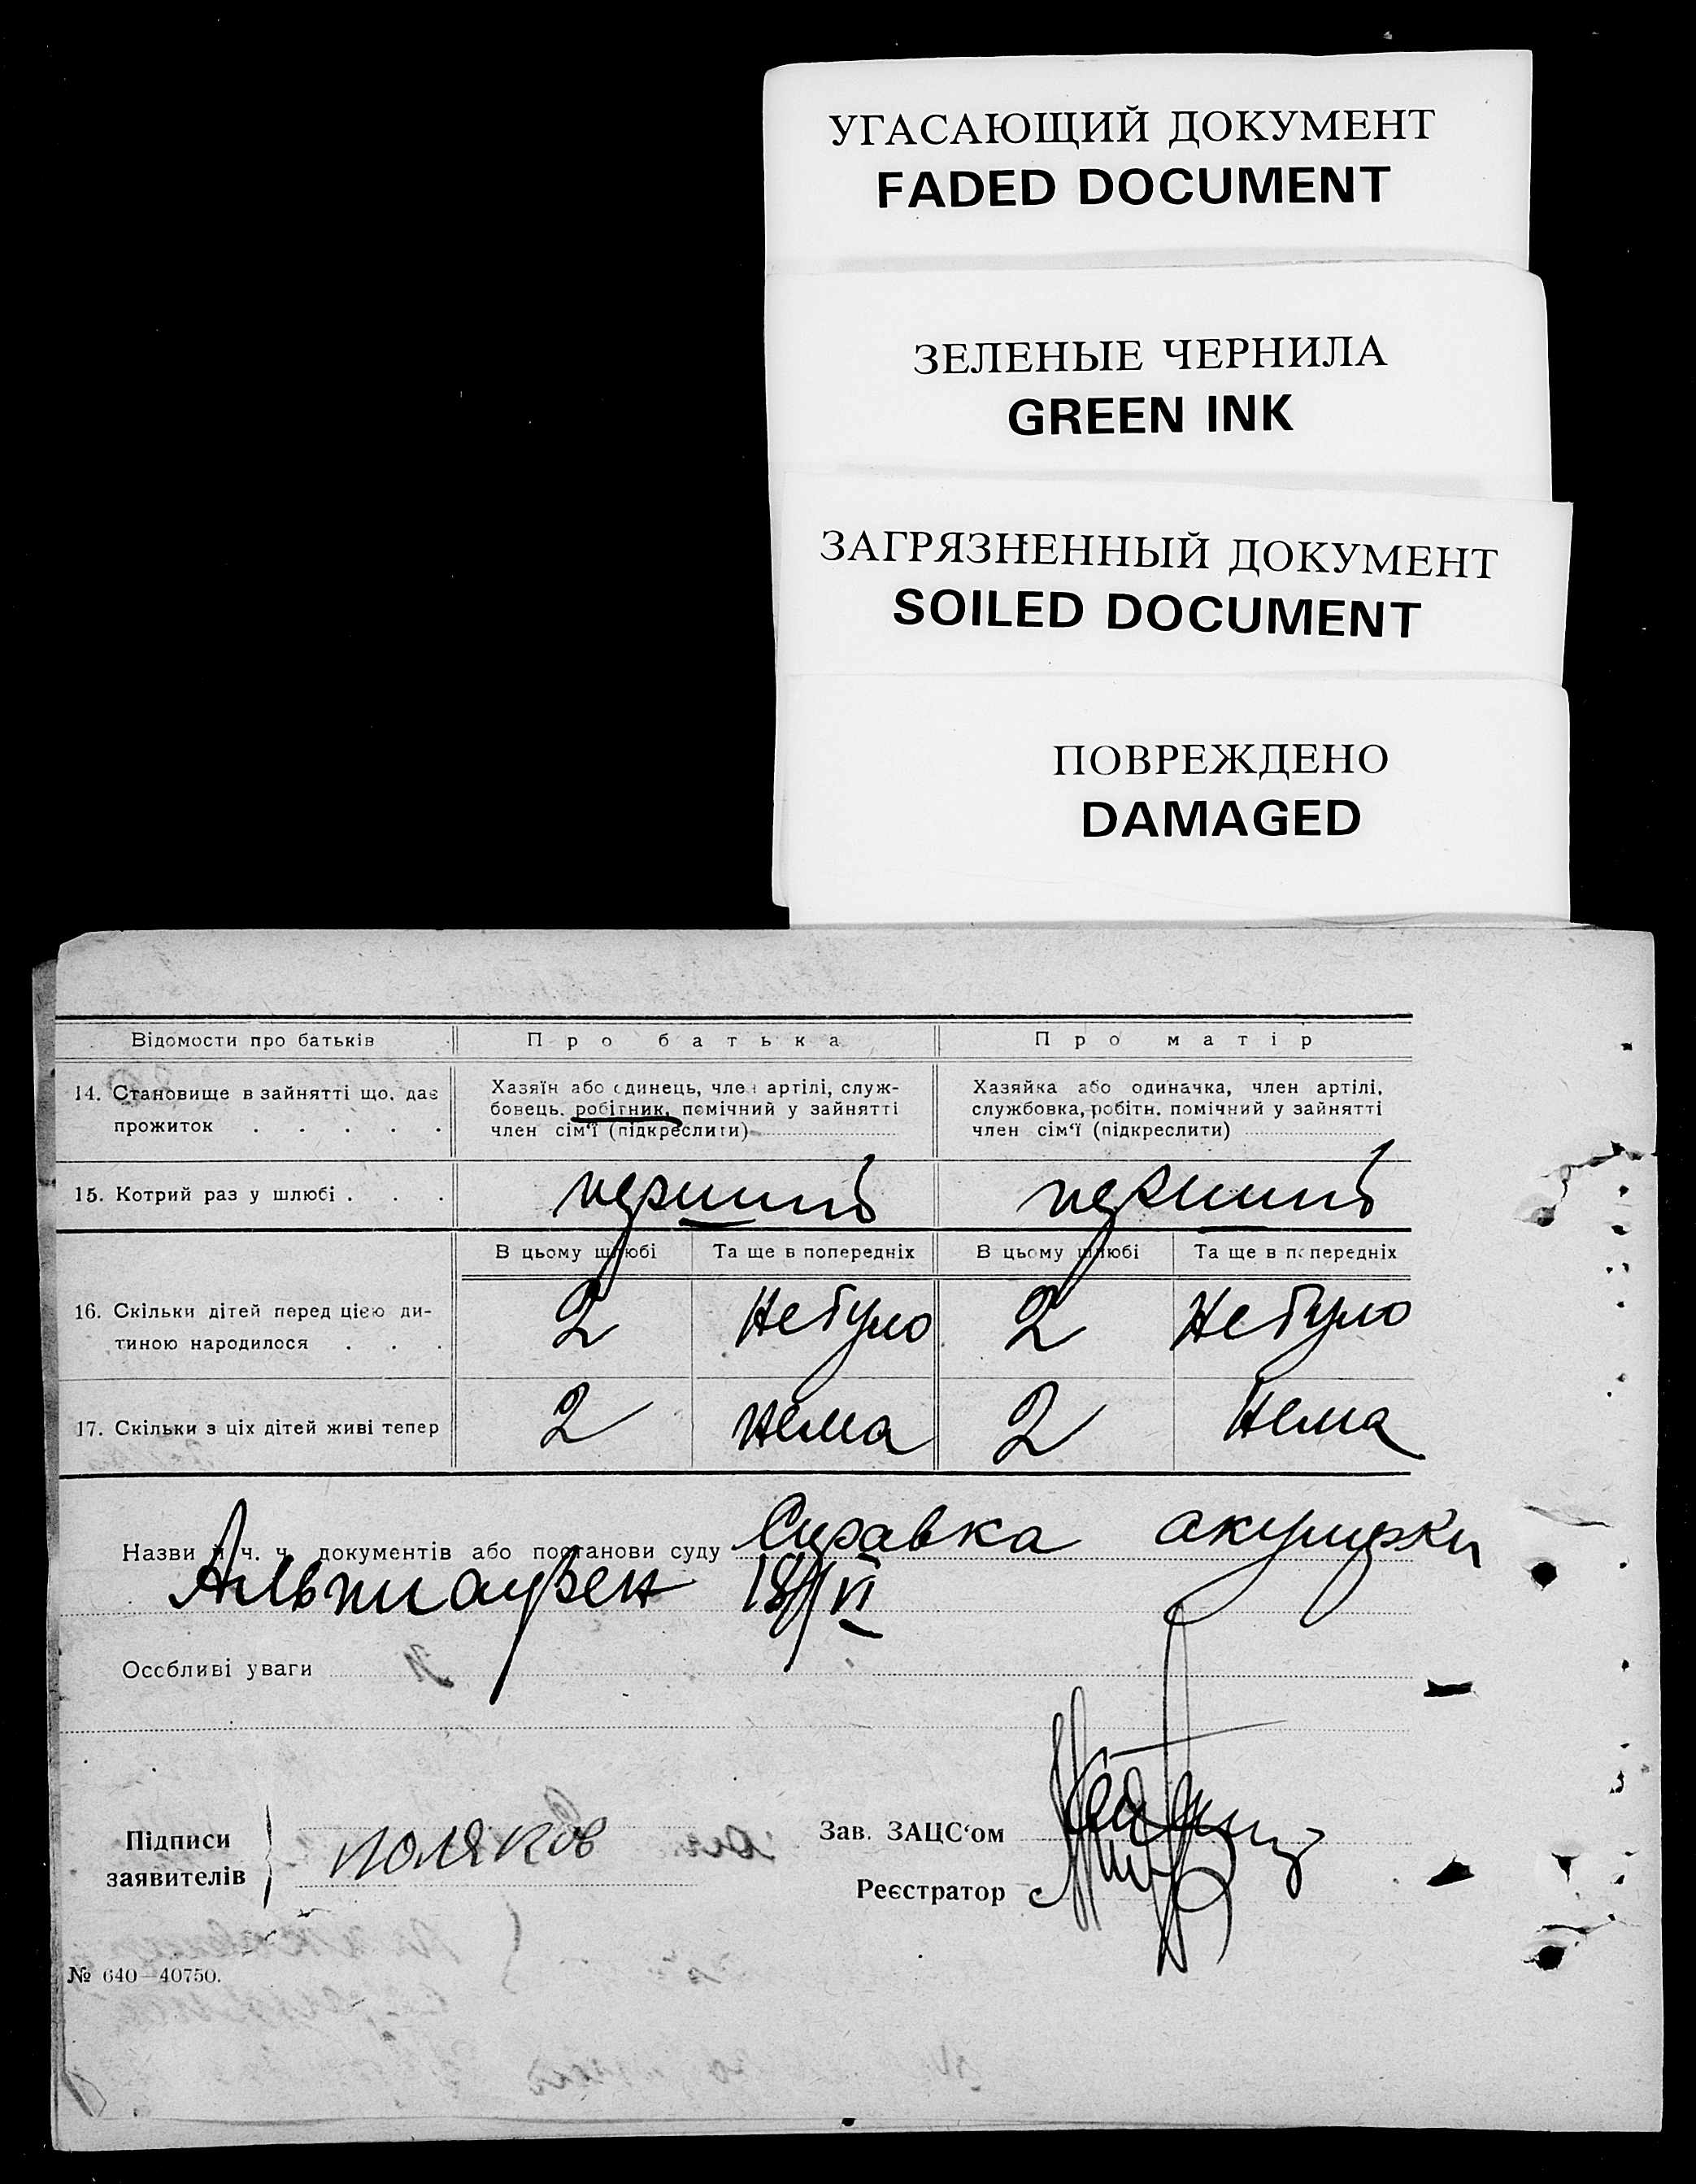 УГАСАЮЩИЙ ДОКУМЕНТ
FADED DOCUMENT
ЗЕЛЕНЫЕ ЧЕРНИЛА
GREEN INK
ЗАГРЯЗНЕННЫЙ ДОКУМЕНТ
SOILED DOCUMENT
ПОВРЕЖДЕНО
DAMAGED
Відомости про батьків Про батька Про матір
14. Становище в зайнятті що, дає прожиток . . . . .
Хазяїн або єдинець, член артілі, служ-
бовець, робітник, помічний у зайнятті
член сім‘ї (підкреслити)
Хазяйка або одиначка, член артілі,
службовка, робітн. помічний у зайнятті
член сім‘ї (підкреслити)
15. Котрий раз у шлюбі . . . перший перший
В цьому шлюбі Та ще в попередніх В цьому шлюбі Та ще в попередніх
16. Скільки дітей перед цією ди-
тиною народилося . . . 2 Не було 2 Не було
17. Скільки з ціх дітей живі тепер 2 нема 2 нема
Назви й ч. ч. документів або постанови суду Справка акушерки
18/VI
Особливі уваги
Підписи
заявителів
Поляков
Зав. ЗАЦС‘ом
Реєстратор
№ 640—40750.